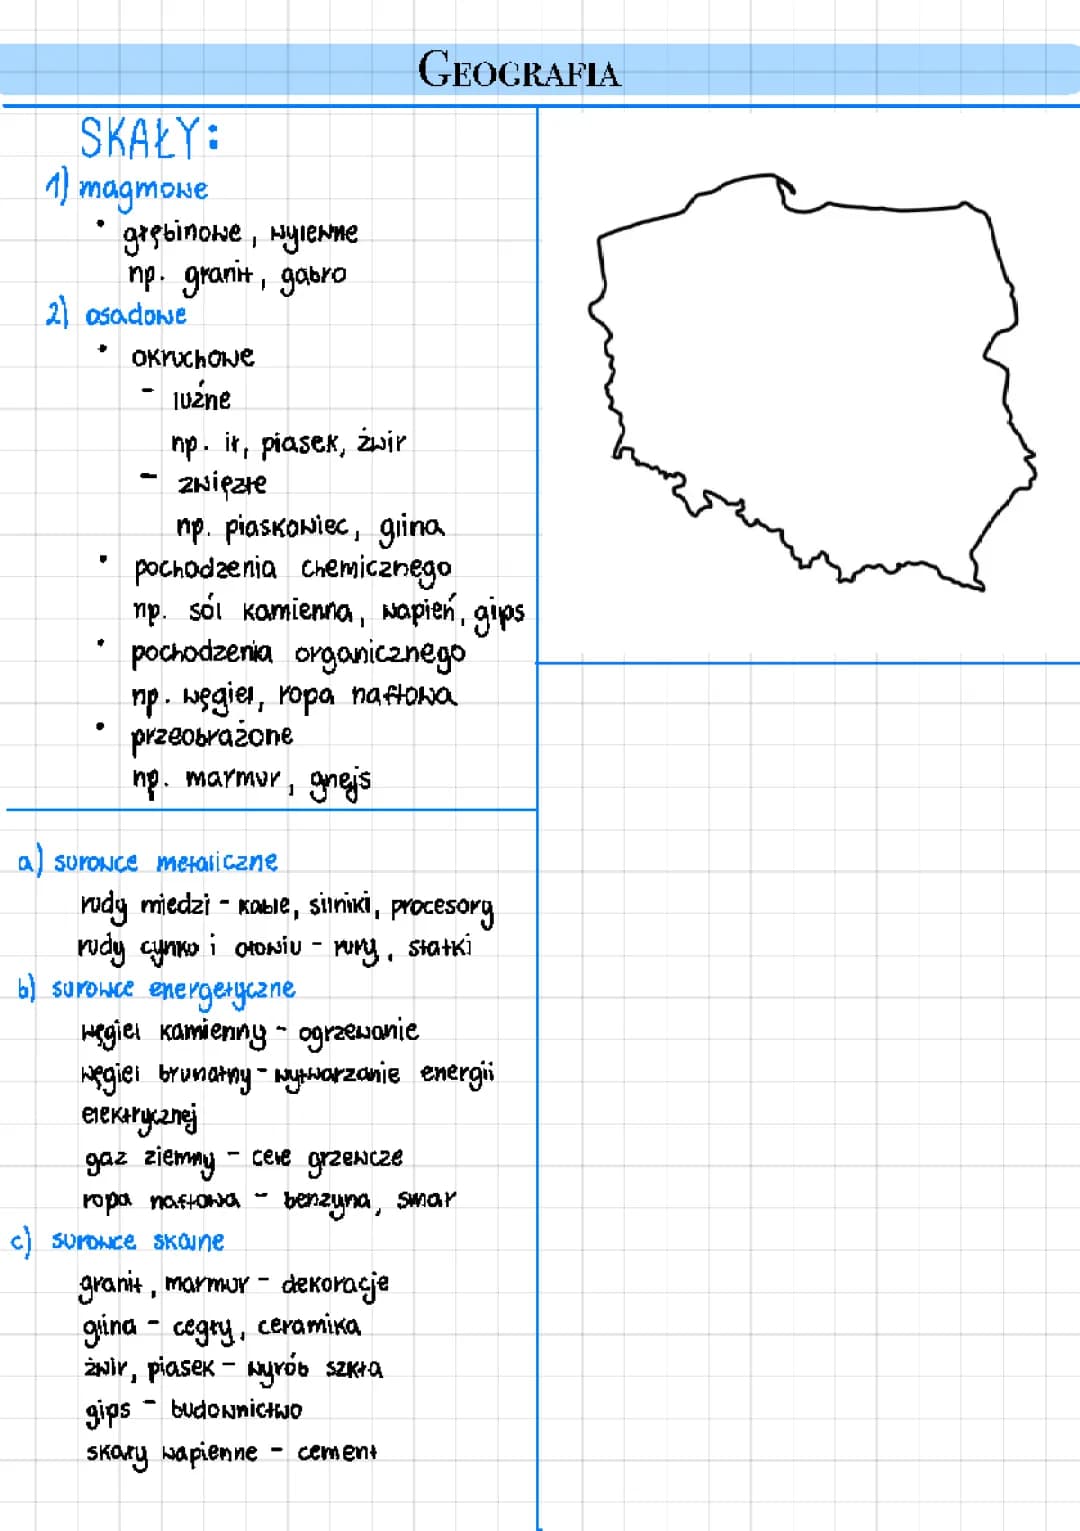 GEOGRAFIA
SKAŁY:
1) magmowe
• głębinowe, wylewne
np. granit, gabro
2) osadowe
• okruchowe
- luźne
np. ił, piasek, żwir
- zwięzłe
np. piaskowiec, glina
• pochodzenia chemicznego
np. sól kamienna, wapień, gips
• pochodzenia organicznego
np. węgiel, ropa naftowa
• przeobrażone
np. marmur, gnejs
a) surowce metaliczne
rudy miedzi - kable, silniki, procesory
rudy cynko i ołowiu - rury, statki
b) surowce energetyczne
węgiel kamienny - ogrzewanie
węgiel brunatny - wytwarzanie energii
elektrycznej
gaz ziemny - cele grzewcze
ropa naftowa - benzyna, smar
c) surowce skalne
granit, marmur - dekoracje
glina - cegły, ceramika
żwir, piasek - wyrób szkła
gips - budownictwo
skały wapienne - cement